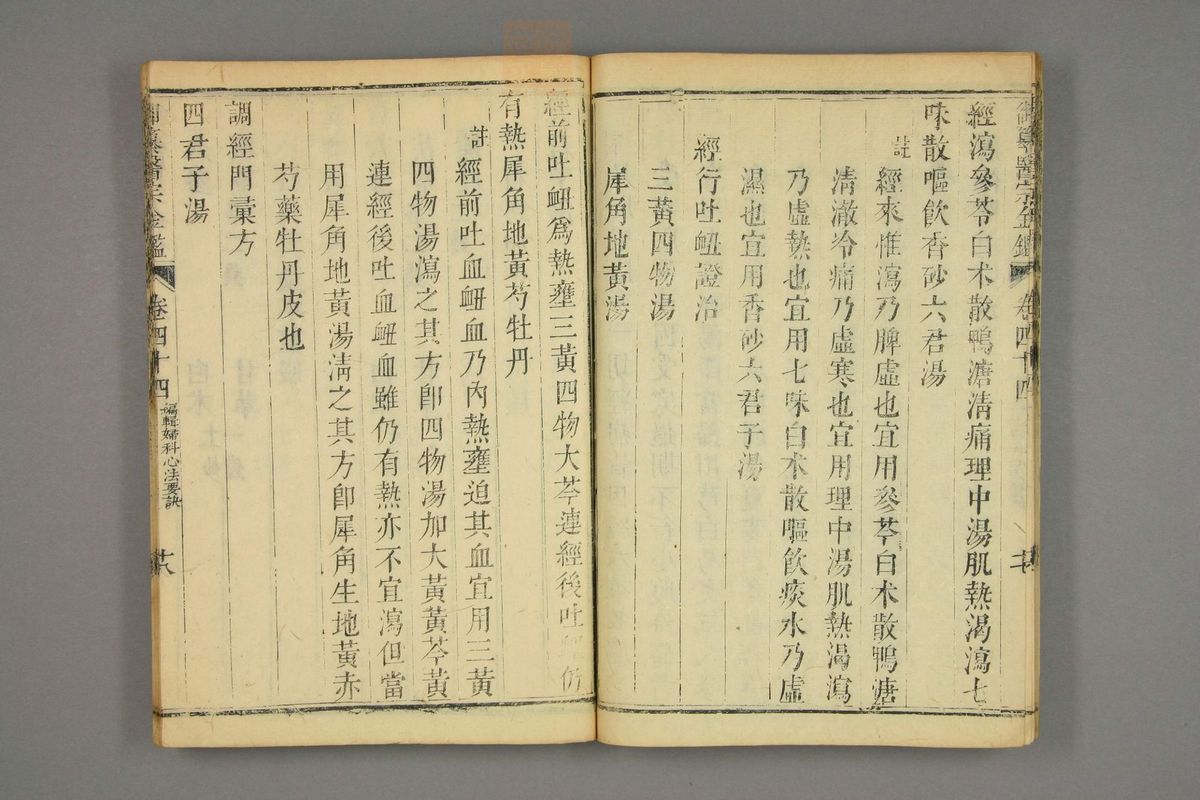 御纂醫宗金鑑 卷四十四
經瀉參苓白术散鴨溏清痛理中湯肌熱渴瀉七
味散嘔飲香砂六君湯
註經來惟瀉乃脾虛也宜用參苓白术散鴨溏
清澈冷痛乃虛寒也宜用理中湯肌熱渴瀉
乃虛熱也宜用七味白术散嘔飲痰水乃虛
濕也宜用香砂六君子湯
經行吐衄證治
三黃四物湯
犀角地黃湯
經前吐衄爲熱壅三黃四物大芩連經後吐仍
有熱犀角地黃芍牡丹
註經前吐血衄血乃內熱壅迫其血宜用三黃
四物湯瀉之其方卽四物湯加大黃黃芩黃
連經後吐血衄血雖仍有熱亦不宜瀉但當
用犀角地黃湯淸之其方卽犀角生地黃赤
芍藥牡丹皮也
調經門彙方
四君子湯
御纂醫宗金鑑 卷四十四 編輯婦科心法要訣 芺